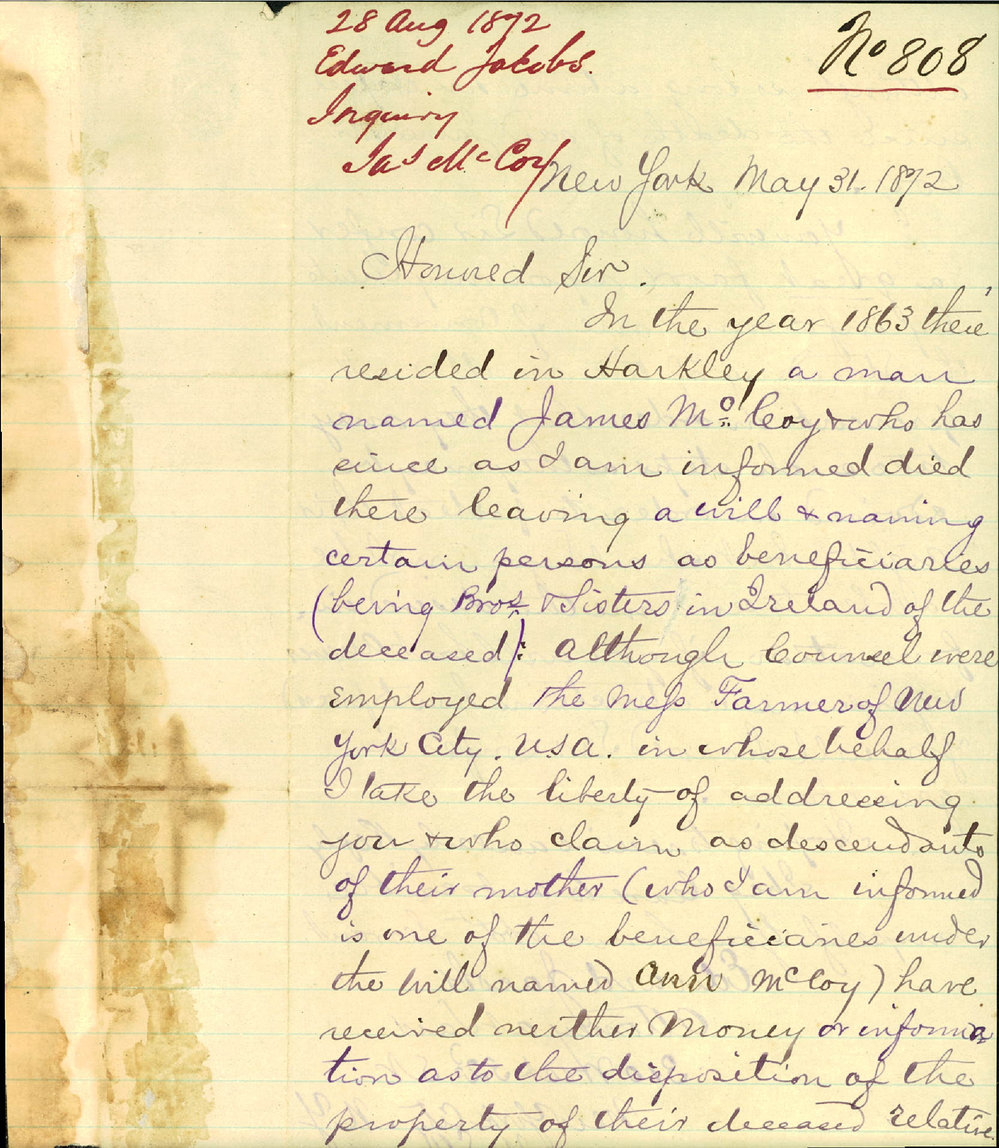 28 Aug 1872
Edward Jacobs.
Inquiry
Jas McCoy
No 808
New York May 31. 1872
Honored Sir.
In the year 1863 there
resided in Harkley a man
named James Mc Coy & who has
since as I am informed died
there leaving a will & naming
certain persons as beneficiaries
(being Bros & Sisters in Ireland of the
deceased): Although Counsel were
employed the Mess Farmer of New
York City. U.S.A. in whose behalf
I take the liberty of addressing
you & who claim as descendants
of their mother (who I am informed
is one of the beneficiaries under
the Will named Ann McCoy) have
received neither Money or informa
tion as to the disposition of the
property of their deceased relative